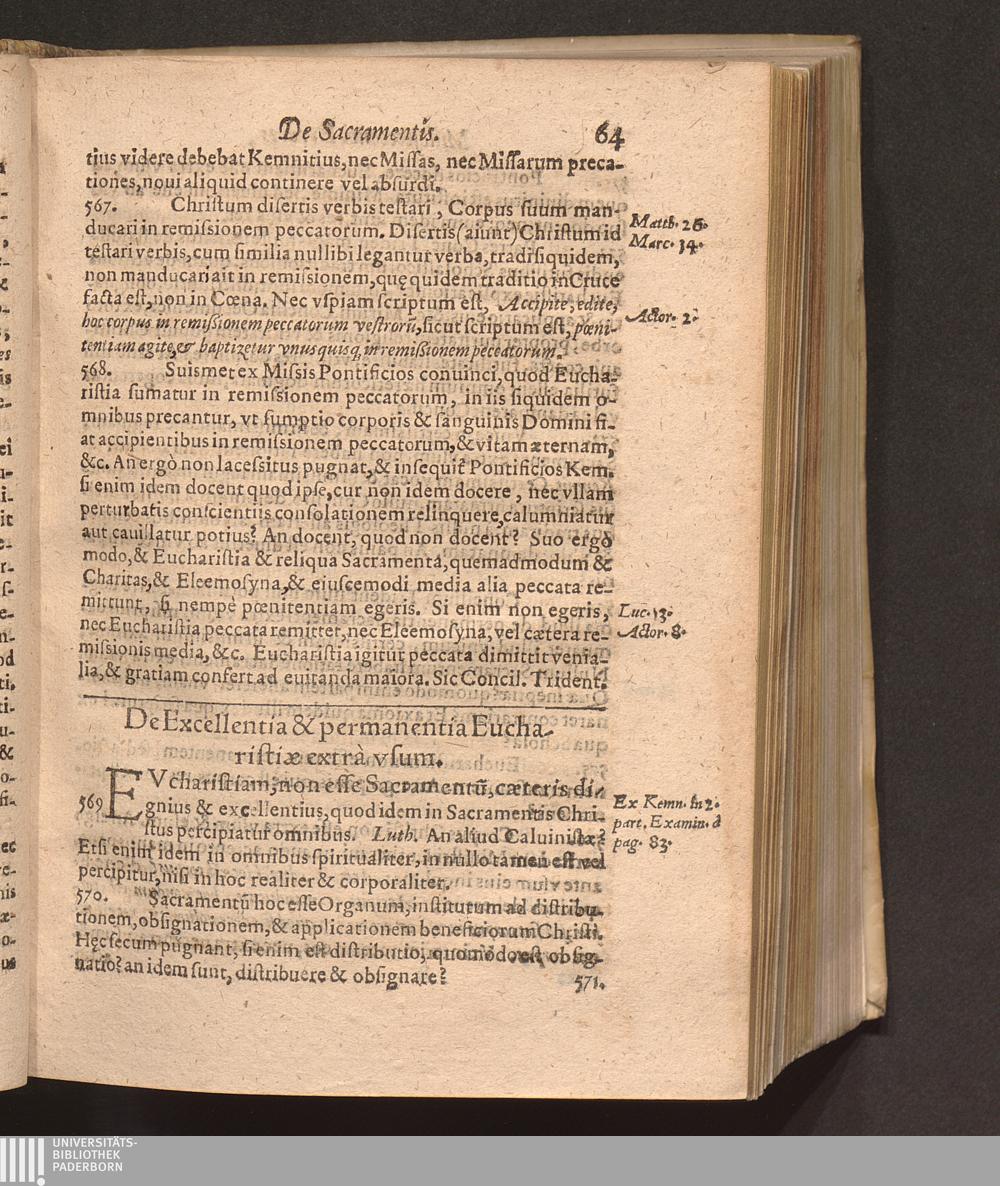 De Sacramentis. 64
tius videre debebat Kemnitius, nec Missas, nec Missarum preca-
tiones, noui aliquid continere vel absurdi.
567. Christum disertis verbis testari, Corpus suum man-
ducari in remissionem peccatorum. Disertis (aiunt) Christum id
testari verbis, cum similia nullibi legantur verba, tradi siquidem,
non manducari ait in remissionem, quę quidem traditio in Cruce
facta est, non in Cœna. Nec vspiam scriptum est, Accipite, edite,
hoc corpus in remissionem peccatorum vestrorũ, sicut scriptum est, pœni-
tentiam agite, & baptizetur vnusquisq, in remissionem peccatorum.
Matth. 26.
Marc. 14.
Actor. 2.
568. Suismet ex Missis Pontificios conuinci, quod Eucha-
ristia sumatur in remissionem peccatorum, in iis siquidem o-
mnibus precantur, vt sumptio corporis & sanguinis Domini fi-
at accipientibus in remissionem peccatorum, & vitam æternam,
&c. An ergò non lacessitus pugnat, & insequit̃ Pontificios Kem.
si enim idem docent quod ipse, cur non idem docere, nec vllam
perturbatis conscientiis consolationem relinquere, calumniatur
aut cauillatur potius? An docent, quod non docent? Suo ergò
modo, & Eucharistia & reliqua Sacramenta, quemadmodum &
Charitas, & Eleemosyna, & eiuscemodi media alia peccata re-
mittunt, si nempè pœnitentiam egeris. Si enim non egeris,
nec Eucharistia peccata remittet, nec Eleemosyna, vel cætera re-
missionis media, &c. Eucharistia igitur peccata dimittit venia-
lia, & gratiam confert ad euitanda maiora. Sic Concil. Trident.
Luc. 13.
Actor. 8.
De Excellentia & permanentia Eucha-
ristiæ extrà vsum.
569 EVcharistiam, non esse Sacramentũ, cæteris di-
gnius & excellentius, quod idem in Sacramentis Chri-
stus percipiatur omnibus. Luth. An aliud Caluinistæ?
Etsi enim idem in omnibus spiritualiter, in nullo tamen est vel
percipitur, nisi in hoc realiter & corporaliter.
Ex Kemn. in 2.
part. Examin. à
pag. 83.
570. Sacramentũ hoc esse Organum, institutum ad distribu-
tionem, obsignationem, & applicationem beneficiorum Christi.
Hęc secum pugnant, si enim est distributio, quomodo est obsig-
natio? an idem sunt, distribuere & obsignare?
571.
UNIVERSITÄTS-
BIBLIOTHEK
PADERBORN